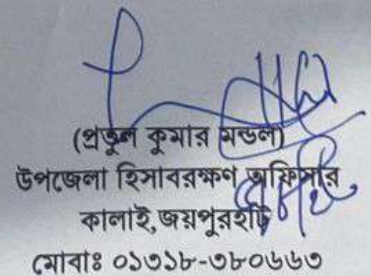 (প্রতুল কুমার মন্ডল)
উপজেলা হিসাবরক্ষণ অফিসার
কালাই,জয়পুরহাট
মোবাঃ ০১৩১৮-৩৮০৬৬৩